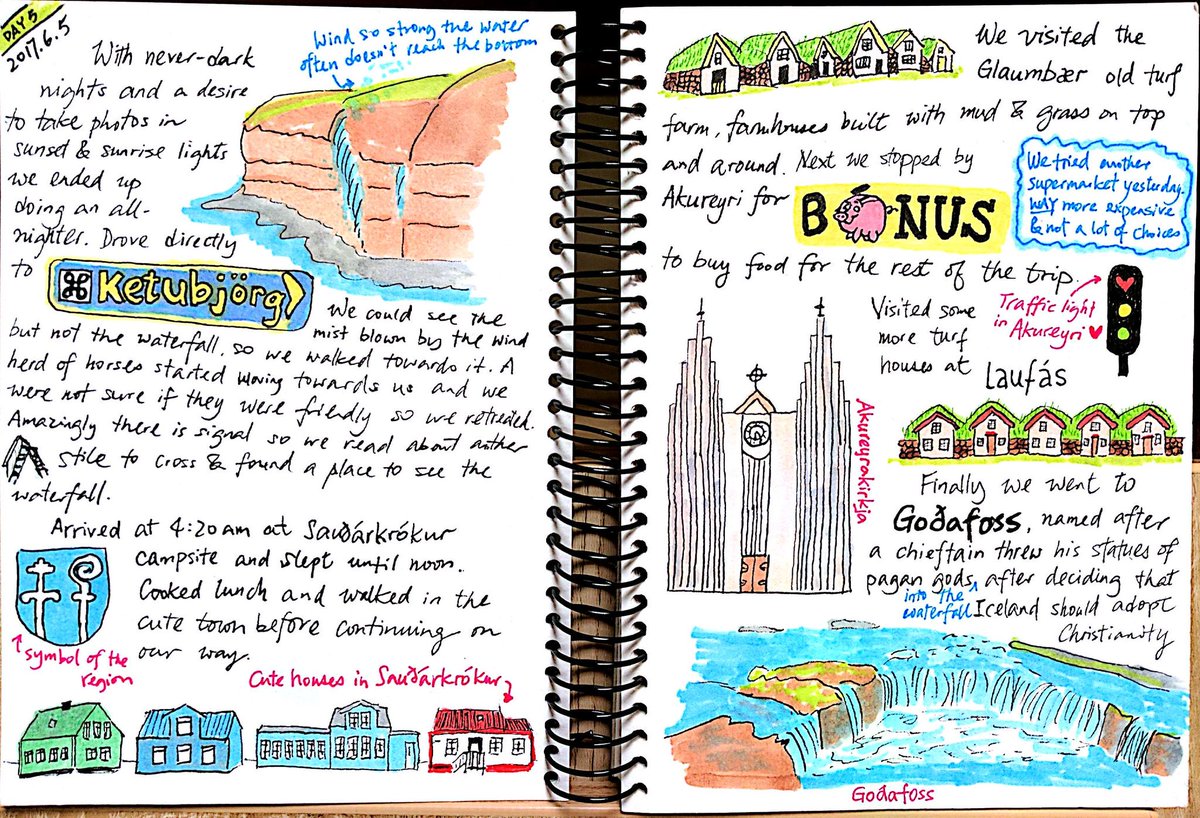 DAY 5
2017.6.5
Wind so strong the water
often doesn't reach the bottom
With never-dark
nights and a desire
to take photos in
sunset & sunrise lights
we ended up
doing an all-
nighter. Drove directly
to
⌘ Ketubjörg
We could see the
mist blown by the wind
but not the waterfall, so we walked towards it. A
herd of horses started moving towards us and we
were not sure if they were friendly so we retreated.
Amazingly there is signal so we read about another
stile to cross & found a place to see the
waterfall.
Arrived at 4:20am at Sauðárkrókur
campsite and slept until noon.
Cooked lunch and walked in the
cute town before continuing on
our way.
symbol of the
region
Cute houses in Sauðárkrókur
We visited the
Glaumbær old turf
farm, farmhouses built with mud & grass on top
and around. Next we stopped by
Akureyri for
BONUS
We tried another
supermarket yesterday.
WAY more expensive
& not a lot of choices
to buy food for the rest of the trip.
Traffic light
in Akureyri
Visited some
more turf
houses at
laufás
Akureyrakirkja
Finally we went to
Goðafoss, named after
a chieftain threw his statues of
pagan gods, after deciding that
into the
waterfall
Iceland should adopt
Christianity
Goðafoss